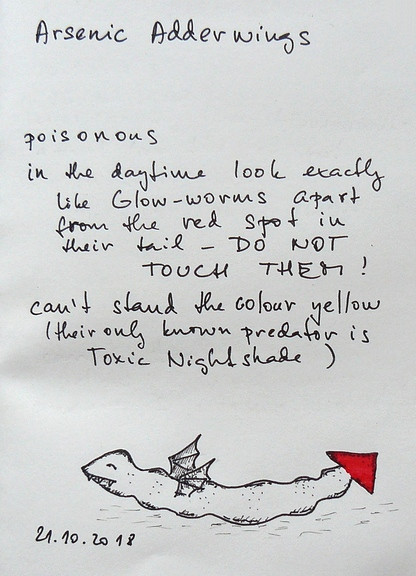 Arsenic Adderwings
poisonous
in the daytime look exactly
like Glow-worms apart
from the red spot in
their tail – DO NOT
TOUCH THEM!
can't stand the colour yellow
(their only known predator is
Toxic Nightshade)
21.10.2018